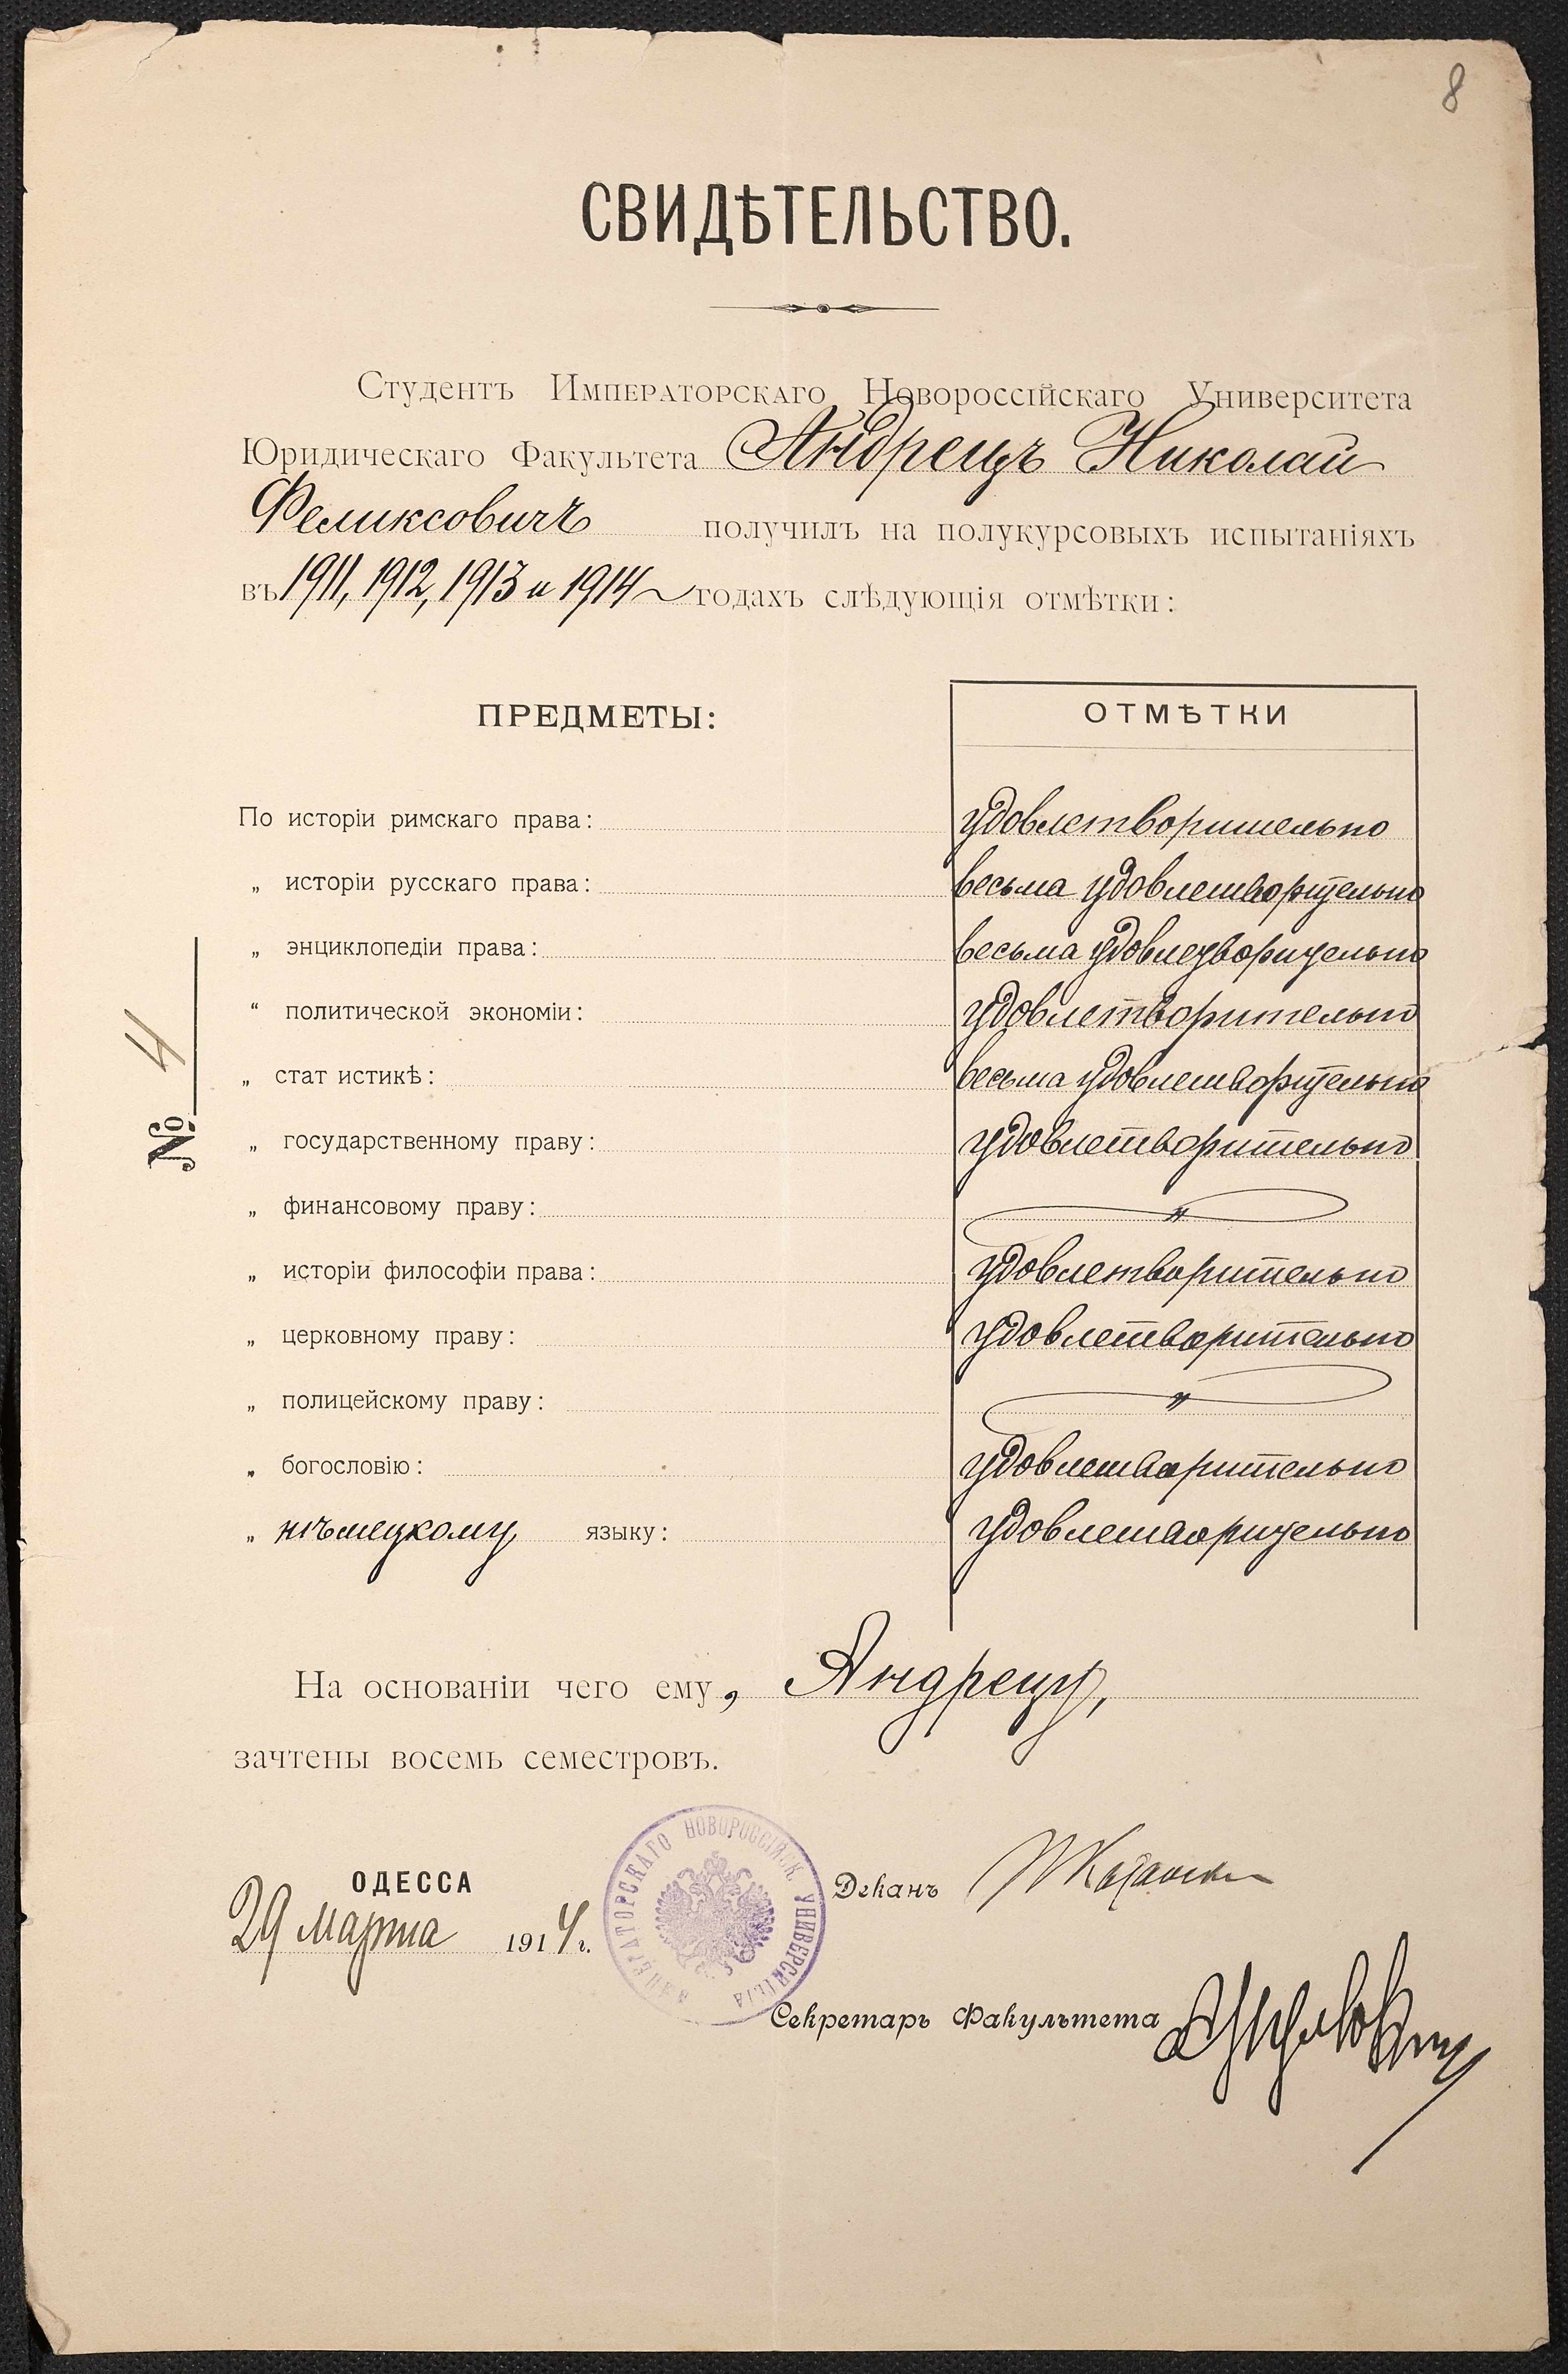 8
СВИДѢТЕЛЬСТВО.
Студентъ Императорскаго Новороссійскаго Университета
Юридическаго Факультета Андрецъ Николай
Феликсовичъ получилъ на полукурсовыхъ испытаніяхъ
въ 1911, 1912, 1913 и 1914 годахъ слѣдующія отмѣтки:
ПРЕДМЕТЫ: ОТМѢТКИ
По исторіи римскаго права: удовлетворительно
„ исторіи русскаго права: весьма удовлетворительно
„ энциклопедіи права: весьма удовлетворительно
“ политической экономіи: удовлетворительно
„ стат истикѣ: весьма удовлетворительно
„ государственному праву: удовлетворительно
„ финансовому праву: „
„ исторіи философіи права: удовлетворительно
„ церковному праву: удовлетворительно
„ полицейскому праву: „
„ богословію: удовлетворительно
„ нѣмецкому языку: удовлетворительно
№ 4
На основаніи чего ему, Андрецу,
зачтены восемь семестровъ.
ОДЕССА
29 марта 1914 г.
ИМПЕРАТОРСКАГО НОВОРОССІЙСК. УНИВЕРСИТЕТА
Деканъ
Секретарь Факультета